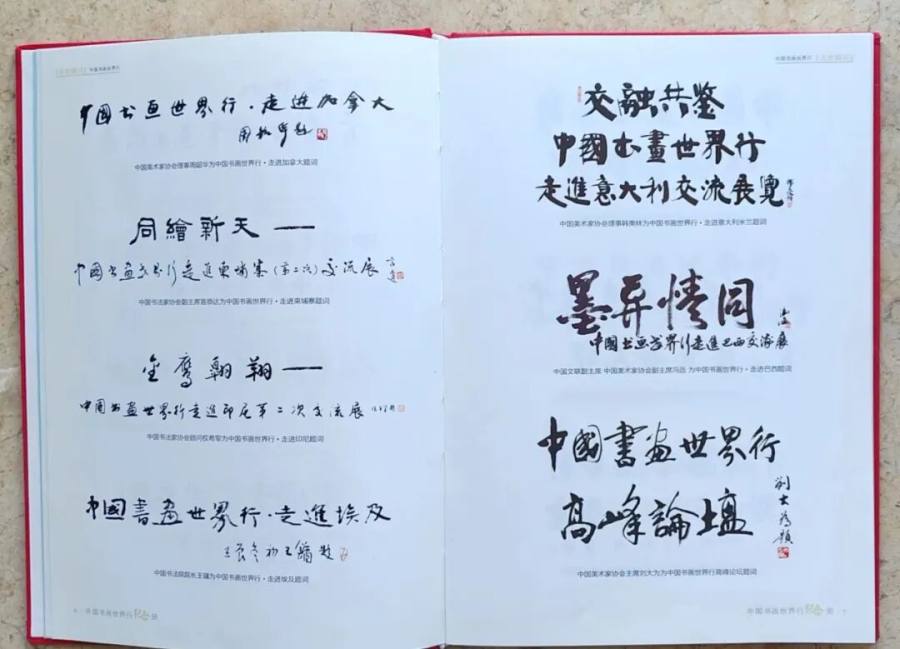 中国书画世界行
中国书画世界行·走进加拿大
周韶华题
中国美术家协会理事周韶华为中国书画世界行·走进加拿大题词
同繪新天——
中国书画世界行走進柬埔寨(第二次)交流展
言恭達
中国书法家协会副主席言恭达为中国书画世界行·走进柬埔寨题词
金鹰翱翔——
中国书画世界行走進印尼第二次交流展
中国书法家协会顾问权希军为中国书画世界行·走进印尼题词
中国書画世界行·走進埃及
壬辰冬初王鏞题
中国书法院院长王镛为中国书画世界行·走进埃及题词
6 中国书画世界行纪念册
中国书画世界行
交融共鉴
中國书畫世界行
走進意大利交流展覽
中国美术家协会理事韩美林为中国书画世界行·走进意大利米兰题词
墨异情同
中國书画世界行走進巴西交流展
中国文联副主席 中国美术家协会副主席冯远 为中国书画世界行·走进巴西题词
中國書画世界行
高峰論壇
劉大為題
中国美术家协会主席刘大为为中国书画世界行高峰论坛题词
中国书画世界行纪念册 7